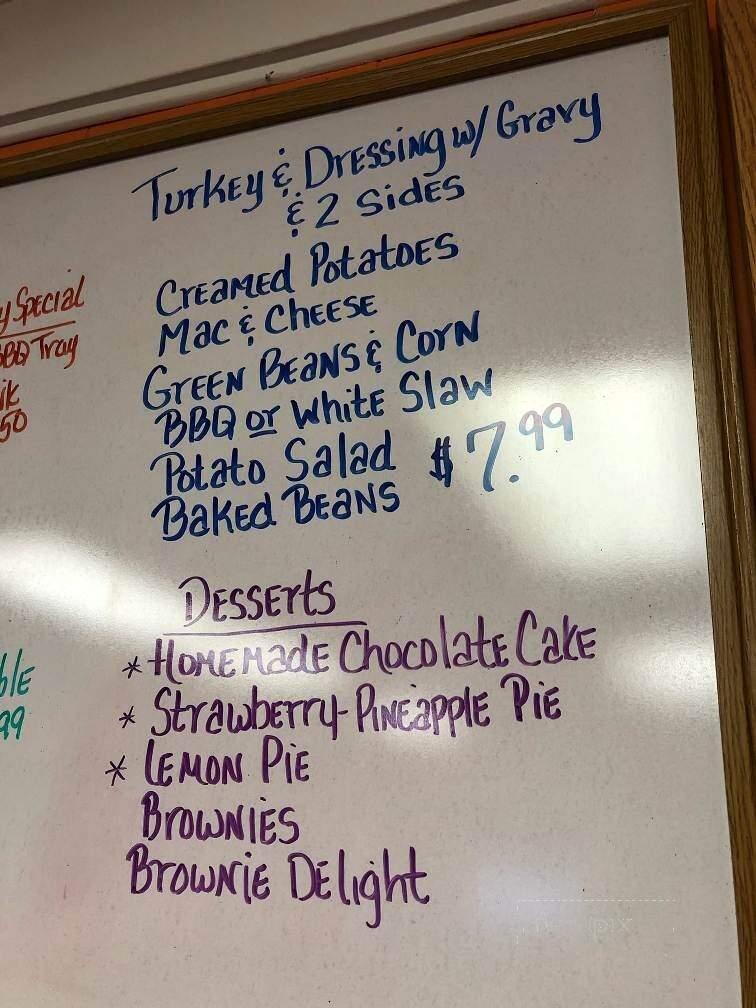 Turkey & Dressing w/ Gravy
& 2 Sides
Creamed Potatoes
Mac & Cheese
Green Beans & Corn
BBQ or White Slaw
Potato Salad $7.99
Baked Beans
Desserts
* Homemade Chocolate Cake
* Strawberry-Pineapple Pie
* Lemon Pie
Brownies
Brownie Delight
y Special
BBQ Tray
ik
50
ble
99